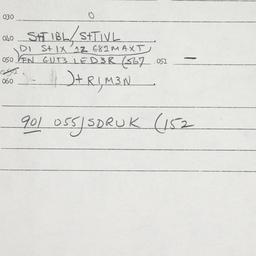 030 0
040 StIBL/StIVL
DI StIX 1Z 681MAXT
050 FN GUT3 LED3R (567 052 —
060 )tRIM3N
901 055JSDRUK (152